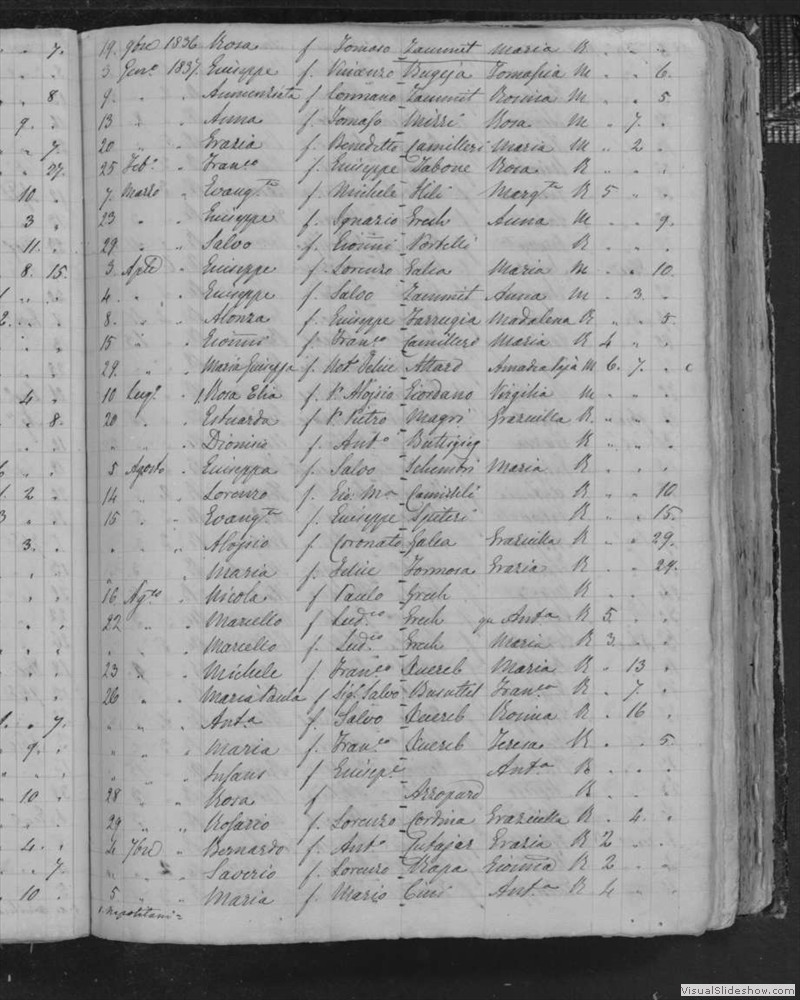 7. 19 9bre 1836 Rosa f Tomaso Zammit Maria R " " "
3 Genn.o 1837 Giuseppe f. Vincenzo Bugeja Tomasia M " " 6.
8. 9 " " Annunziata f Zammit Rosina M " " 5
9. 13 " " Anna f Tomaso Mizzi Rosa M " 7. "
7. 20 " " Grazia f Benedetto Camilleri Maria M " 2 "
27. 25 Feb.o " Fran.co f. Giuseppe Tabone Rosa R " " "
10. 7 Marzo " Evang.ta f Michele Hili Marg.ta R 5 " "
3. 23 " " Giuseppe f. Ignazio Grech Anna M " " 9.
11. 29 " " Salvo f. Giovni Portelli R " " "
8. 15. 3 Aple " Giuseppe f. Lorenzo Galea Maria M " " 10.
4. " " Giuseppe f. Salvo Zammit Anna M " 3. "
2. 8. " " f. Giuseppe Farrugia Madalena R " " 5.
15 " " Giovni f. Fran.co Camilleri Maria R 4 " "
29. " " Maria Giuseppa f. Not.o Felice Attard M 6. 7. "
4. 10 Lug.o " 1. Rosa Elia f. Aloisio Giordano Virgilia M " " "
8. 20 " " Eduarda f Pietro Magri Graziulla R. " " "
" " " Dionisio f Ant.o Buttigieg R " " "
5 Agosto " Giuseppa f. Salvo Schembri Maria R " " "
2. 14 " " Lorenzo f. Gio. M.a Camilleri R " " 10
15 " " Evang.ta f. Giuseppe Spiteri R " " 15.
3. " " " Aloisio f Coronato Galea Graziulla R " " 29.
" Maria f. Felice Formosa Grazia R " " 29.
16 Ag.to " Nicola f Paulo Grech R " " "
22 " " Marcello f. Lud.co Grech Ant.a R 5 " "
" " " Marcello f. Lud.co Grech Maria R 3 " "
23 " " Michele f Fran.co Xuereb Maria R " 13 "
26 " " Maria Paula f Sig.r Salvo Busuttil Fran.ca R " 7. "
7. " " " Ant.a f. Salvo Xuereb Rosina R " 16 "
9. " " " Maria f. Fran.co Xuereb Teresa R " " 5.
" " " Infans f Giusep.e Ant.a R " " "
10 28 " " Rosa f Azzopard R " " "
29 " " Rosario f. Lorenzo Cordina Graziulla R " 4. "
4. 4 7bre " Bernardo f. Ant.o Cutajar Grazia R 2 " "
7. " " " Saverio f. Lorenzo Rapa R 2 " "
10 5 " " Maria f. Mario Cini Ant.a R 4 " "
1. Napolitani =
VisualSlideshow.com